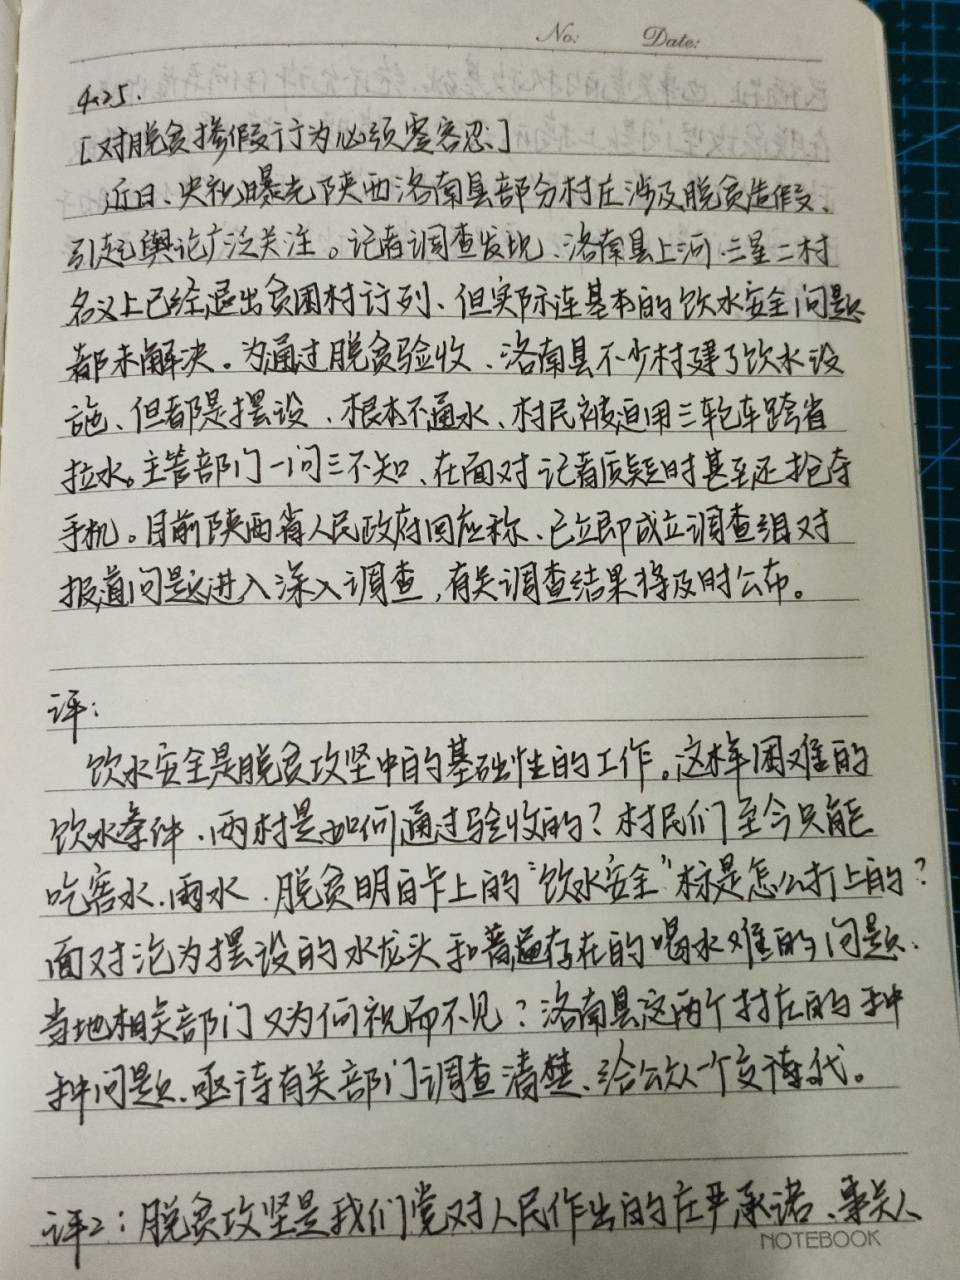 No: Date:
4.25.
[对脱贫掺假行为必须零容忍]
近日、央视曝光陕西洛南县部分村庄涉及脱贫造假、
引起舆论广泛关注。记者调查发现、洛南县上河、三星二村
名义上已经退出贫困村行列、但实际连基本的饮水安全问题
都未解决。为通过脱贫验收、洛南县不少村建了饮水设
施、但都是摆设、根本不通水、村民被迫用三轮车跨省
拉水。主管部门一问三不知、在面对记者质疑时甚至还抢夺
手机。目前陕西省人民政府回应称、已立即成立调查组对
报道问题进入深入调查,有关调查结果将及时公布。
评:
饮水安全是脱贫攻坚中的基础性的工作。这样困难的
饮水条件、两村是如何通过验收的?村民们至今只能
吃窖水、雨水、脱贫明白卡上的“饮水安全”标是怎么打上的?
面对沦为摆设的水龙头和普遍存在的喝水难的问题、
当地相关部门又为何视而不见?洛南县这两个村庄的种
种问题、亟待有关部门调查清楚、给公众一个交代。
评2:脱贫攻坚是我们党对人民作出的庄严承诺、事关人
NOTEBOOK